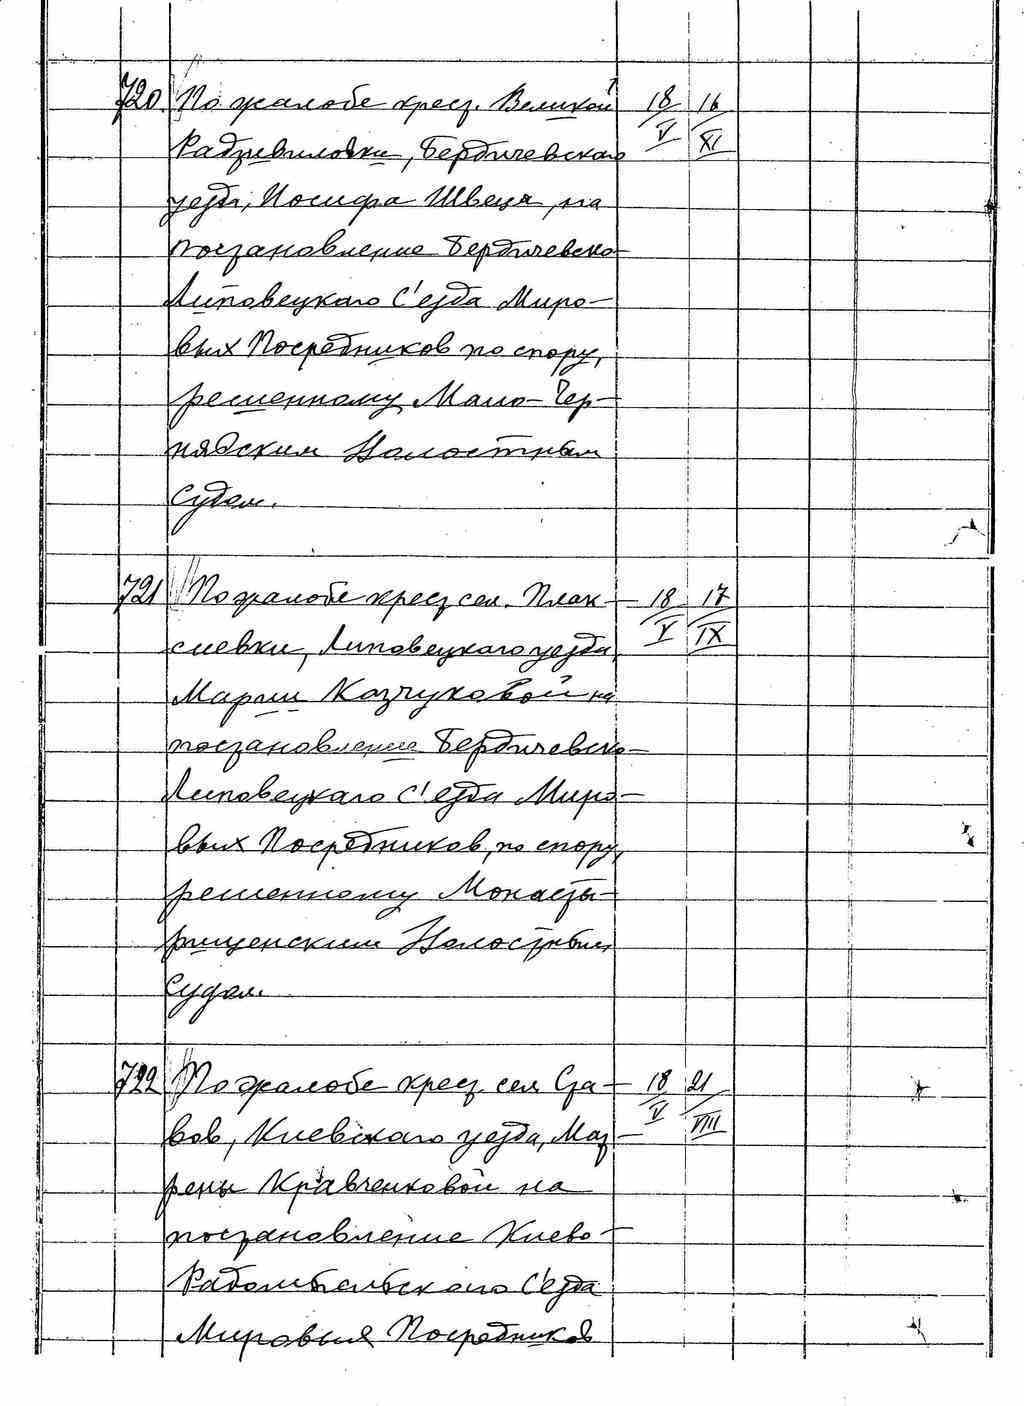 720. По жалобе крест. Великой 18/V 16/XI
Радзивиловки, Бердичевскаго
уезда, Иосифа Швеця, на
постановление Бердичевско-
Липовецкаго С'езда Миро-
вых Посредников по спору,
решенному Мало-Чер-
нявским Волостным
Судом.
721 По жалобе крест. сел. Плак-
сиевки, Липовецкаго уезда, 18/V 17/IX
Марии Казчуковой на
постановление Бердичевско-
Липовецкаго С'езда Миро-
вых Посредников, по спору,
решенному Монасты-
рищенским Волостным
Судом.
722 По жалобе крест. сел Ста- 18/V 21/VIII
вов, Киевскаго уезда, Мат-
рены Кравченковой на
постановление Киево-
Радомысльскаго С'езда
Мировых Посредников